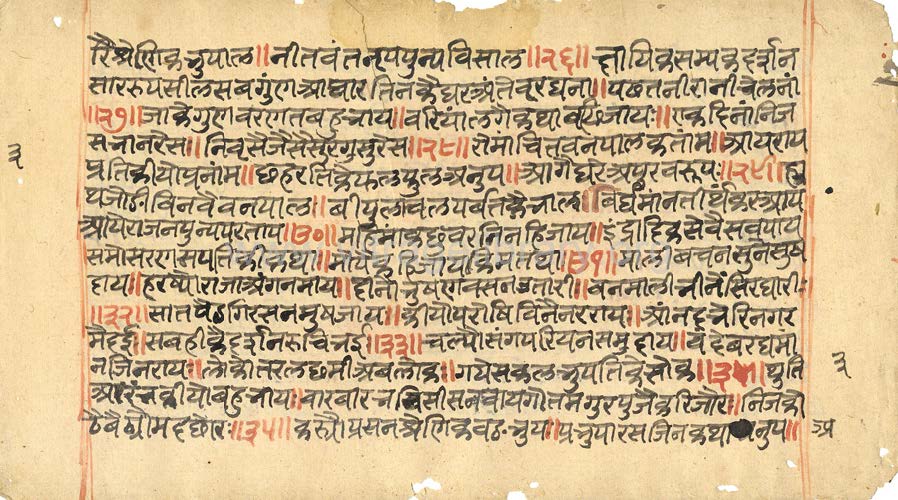 रैश्रेणिकभुपाल॥नीतवंतनृपपुन्यविसाल॥२६॥षायिकसम्यकदर्शन
साररुपसीलसबगुंणआधारतिनकैघरअंतेवरघना॥पछतनीरानीचेलनां
॥२७॥जाकेगुणवरणतबहुभाय॥वरियालगैकथावधिजायः॥एकदिनांनिज
सभानरेस॥निवृसैजैसैसुरगुसुरेस॥२८॥रोमांचितवनपालकतांम॥आयराय
प्रतिकीयोप्रनांम॥छहरतिकेफलफुलअनुप॥आगैधरेअपुरवरूपः॥२९॥हा
थजोडीविनवैवनपाल॥बीपुलाचलपर्वतकेभाल॥विर्धमांनतीर्थंकरआय
आयेराजनपुन्यपरताप॥३०॥महिमांकछुवरनिनहिजाय॥इंद्रादिकसेवैसबपाय
समोसरणसंपतिकीकथा॥मोपैकहिजायकिमतथा॥३१॥मालीबचनसुनेसुष
दाय॥हरष्योराजाअंगनमाय॥दीनेभुषणवसनउतारी॥वनमालीलीनैसिरधारीः
॥३२॥सातपैडगिरसनमुषजायः॥कीयोपरोषिविनैनरराय॥आंनदभेरिनगर
मैदई॥सबहीकैदर्शनरुचिभई॥३३॥चल्यौसंगपरियनसमुदाय॥वंदेवरधमां
नजिनराय॥लोकोतरलछमीअबलोक॥गयेसकलभुपतिकेसोक॥३४॥थुति
आरंभकीयोबहुभीय॥बारबारभुविसीसनवायगोतमगुरपुजेकरिजोरि॥निजको
ठैबैठ्यौमदछोरः॥३५॥कस्यौप्रसनश्रेणिकवडभुप॥प्रभुपारसजिनकथा नुप॥
३
३